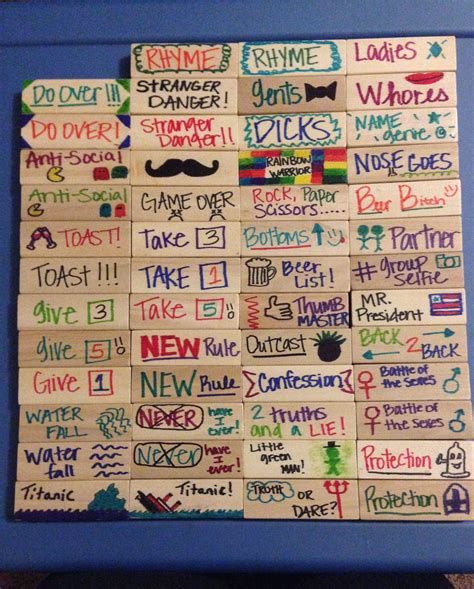 Do Over!!!
DO OVER!
Anti-Social
Anti-Social
TOAST!
TOAST !!!
give 3
give 5!!
Give 1
WATER
FALL
Water
fall
Titanic
RHYME
STRANGER
DANGER!
Stranger
Danger!!
GAME OVER
Take 3
TAKE 1
Take 5!!
NEW Rule
NEW Rule
NEVER have
I
ever!
Never have
I
ever!
Titanic!
RHYME
gents
DICKS
RAINBOW
WARRIOR
ROCK, Paper
Scissors.....
Bottoms
Beer
List!
THUMB
MASTER
Outcast
Confession
2 truths
and a LIE!
Little
green
MAN!
TRUTH OR
DARE?
Ladies
Whores
NAME
genre
NOSE GOES
Beer Bitch
Partner
#group
selfie
MR.
President
BACK
2
BACK
Battle of
the Sexes
Battle of
the Sexes
Protection
Protection